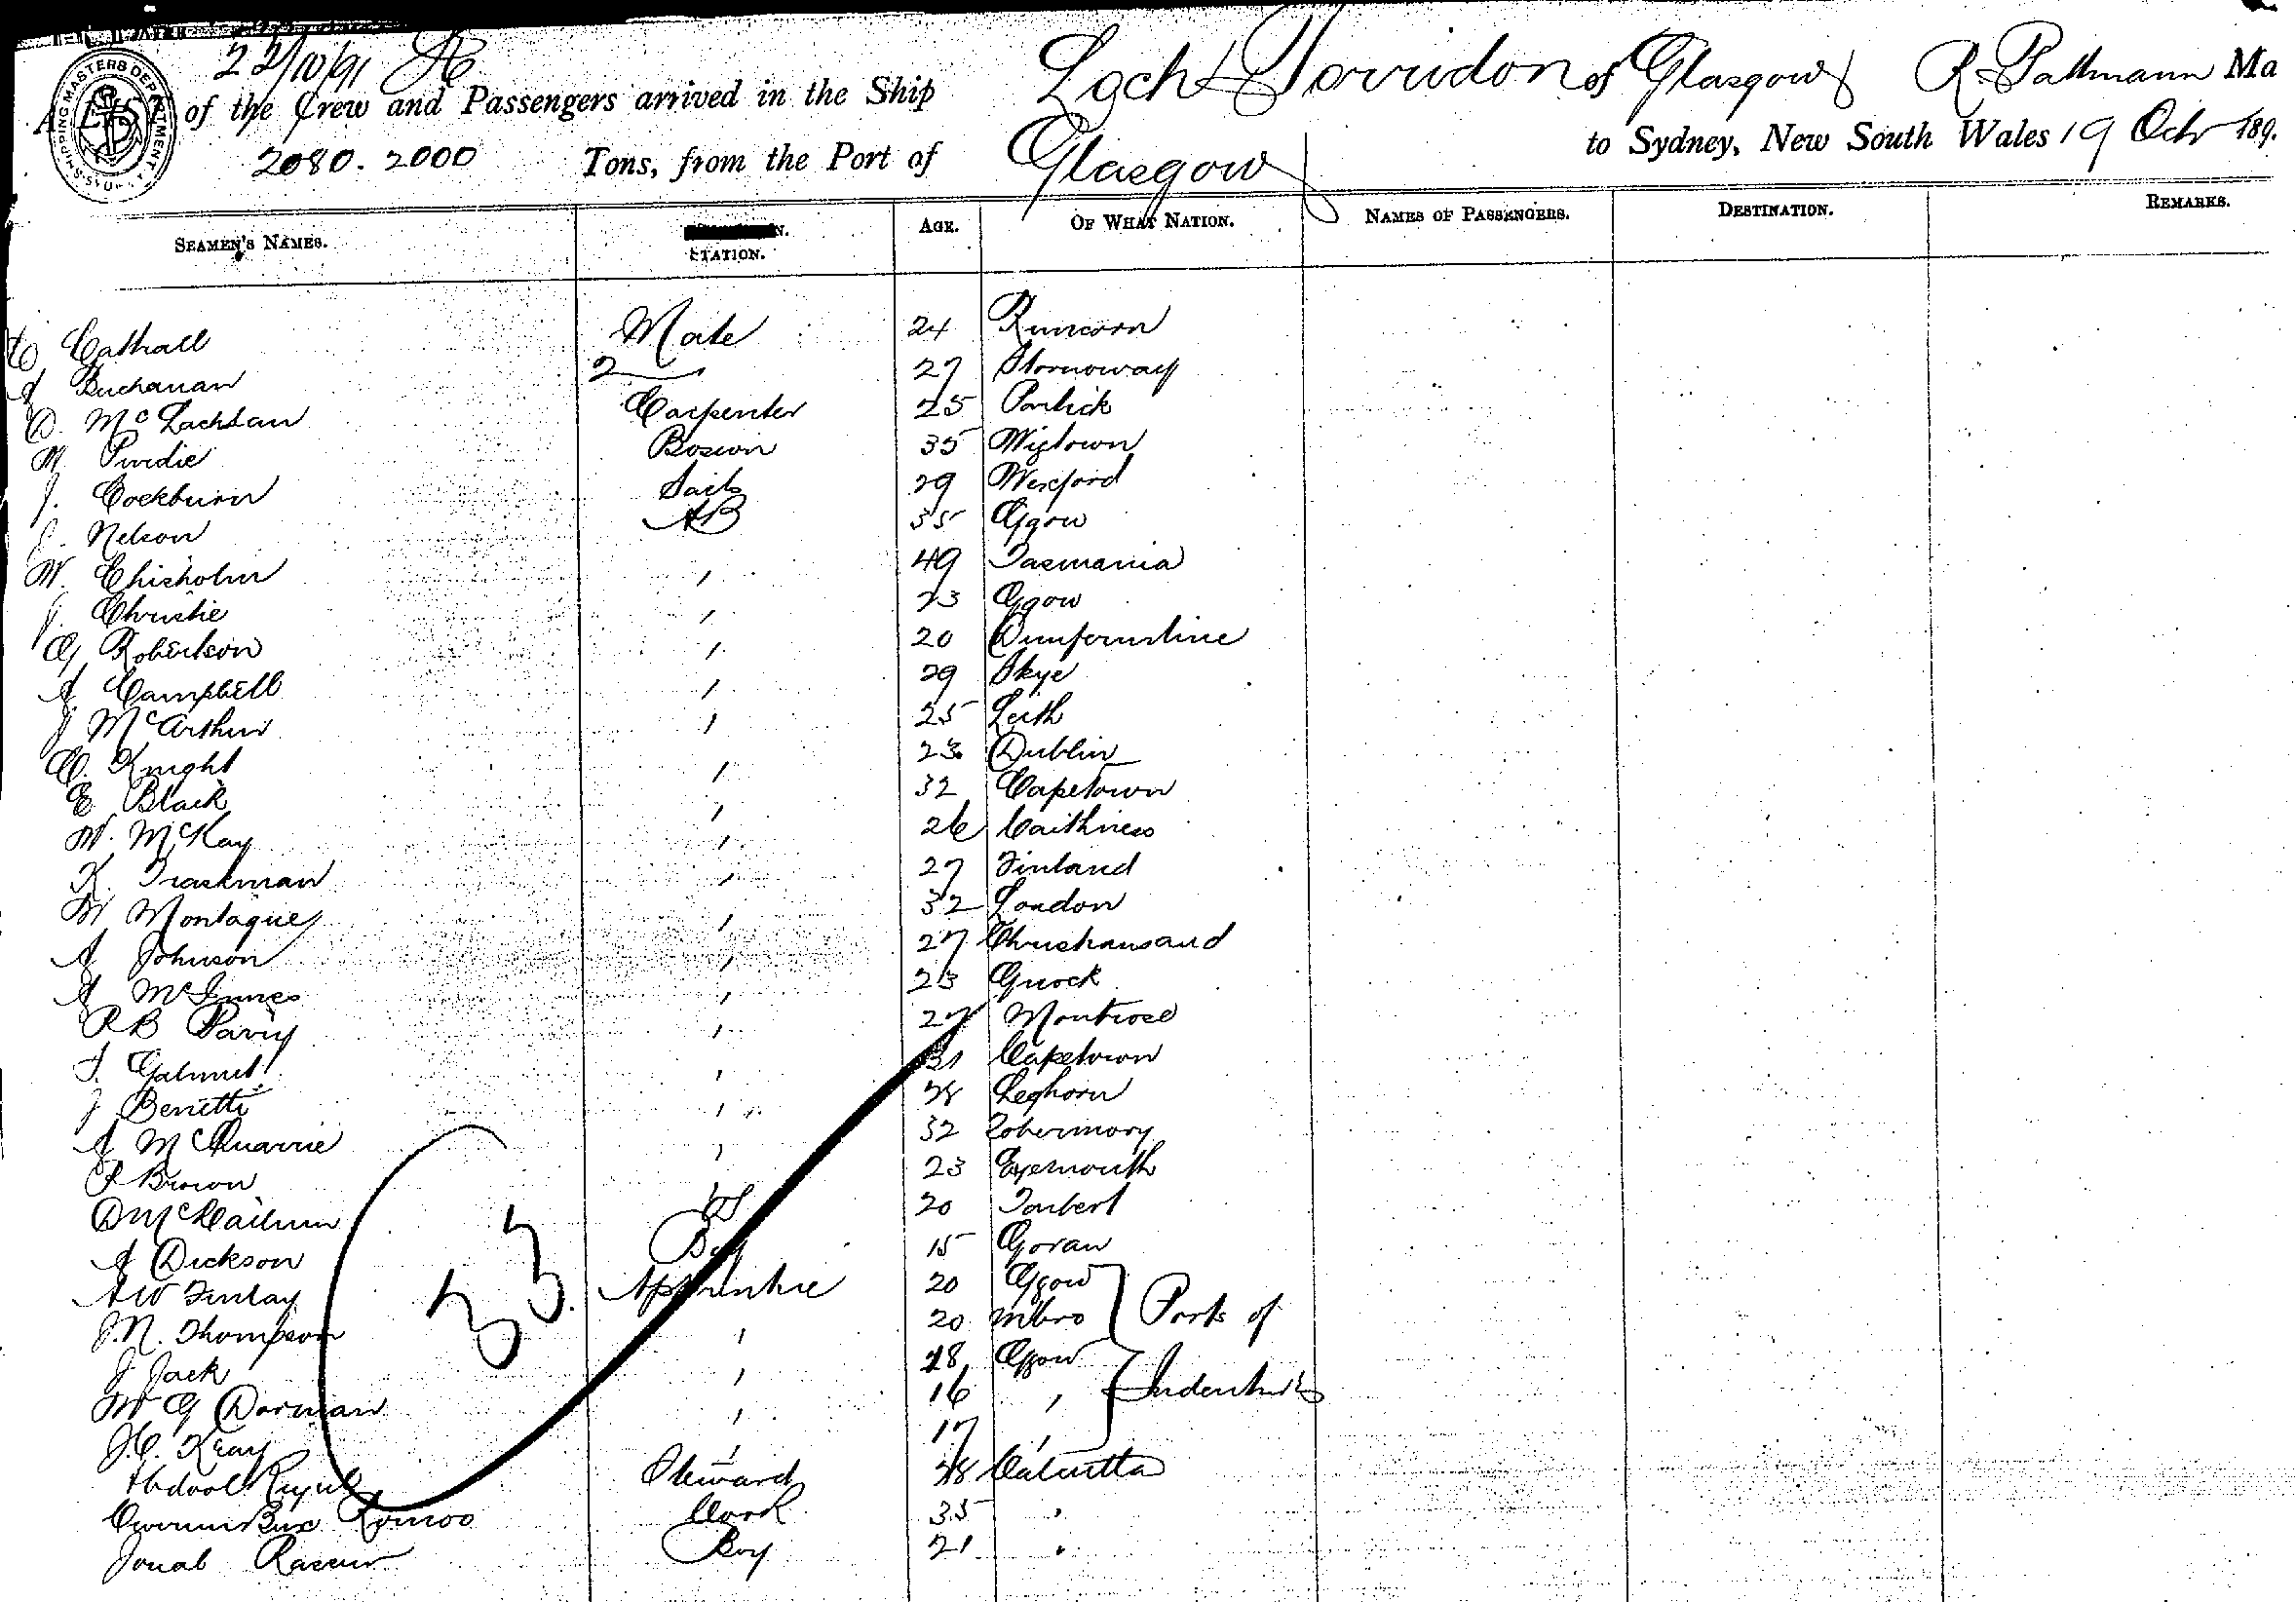 22/10/91
A LIST of the Crew and Passengers arrived in the Ship Loch Torridon of Glasgow R. Pattmann Ma
2080. 2000 Tons, from the Port of Glasgow to Sydney, New South Wales 19 Octr 189.
SHIPPING MASTERS DEPARTMENT
SEAMEN'S NAMES. STATION. AGE. OF WHAT NATION. NAMES OF PASSENGERS. DESTINATION. REMARKS.
Cathall Mate 24 Runcorn
A Buchanan 2 27 Stornoway
D. McLachlan Carpenter 25 Partick
W. Purdie Boswn 35 Wigtown
J. Cockburn Sails 29 Wexford
J. Nelson AB 35 Ggow
W. Chisholm " 49 Tasmania
J. Christie " 23 Ggow
G Robertson " 20 Dunfermline
A Campbell " 29 Skye
J McArthur " 25 Leith
C. Knight " 23 Dublin
E Black " 32 Capetown
W. McKay " 26 Caithness
K. Traskman " 27 Finland
W Montague " 32 London
A Johnson " 27 Christiansand
A McInnes " 23 Gnock
R B Pavry " 27 Montrose
31 Capetown
J Benetti " 28 Leghorn
A McQuarrie " 32 Tobermory
P Brown " 23 Eyemouth
D McCallum OS 20 Tarbert
A Dickson Boy 15 Govan
A W Finlay Apprentice 20 Ggow
J. N. Thompson " 20 Mbro Ports of
J Jack " 18 Ggow
W G Dorman " 16 " Indentures
J. C. Keay " 17 "
Abdool Steward 28 Calcutta
Bux Cook 35 "
Boy 21 "
33